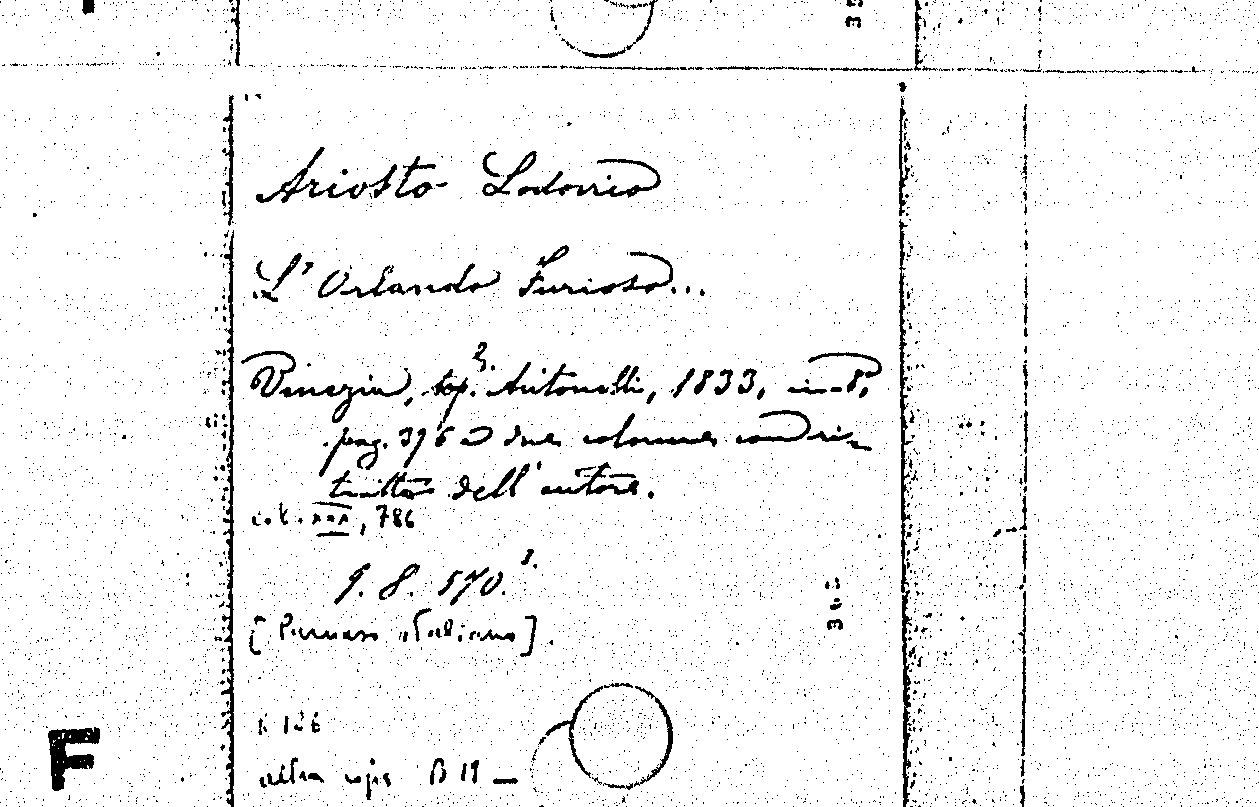 Ariosto Lodovico
L'Orlando Furioso...
Venezia, top. Antonelli, 1833, in-8º,
pag. 376 a due colonne con ri-
tratto dell'autore.
col. XXX, 786
9. 8. 570.³·
[Parnaso italiano].
342
K 126
altra copia B 19 —
F